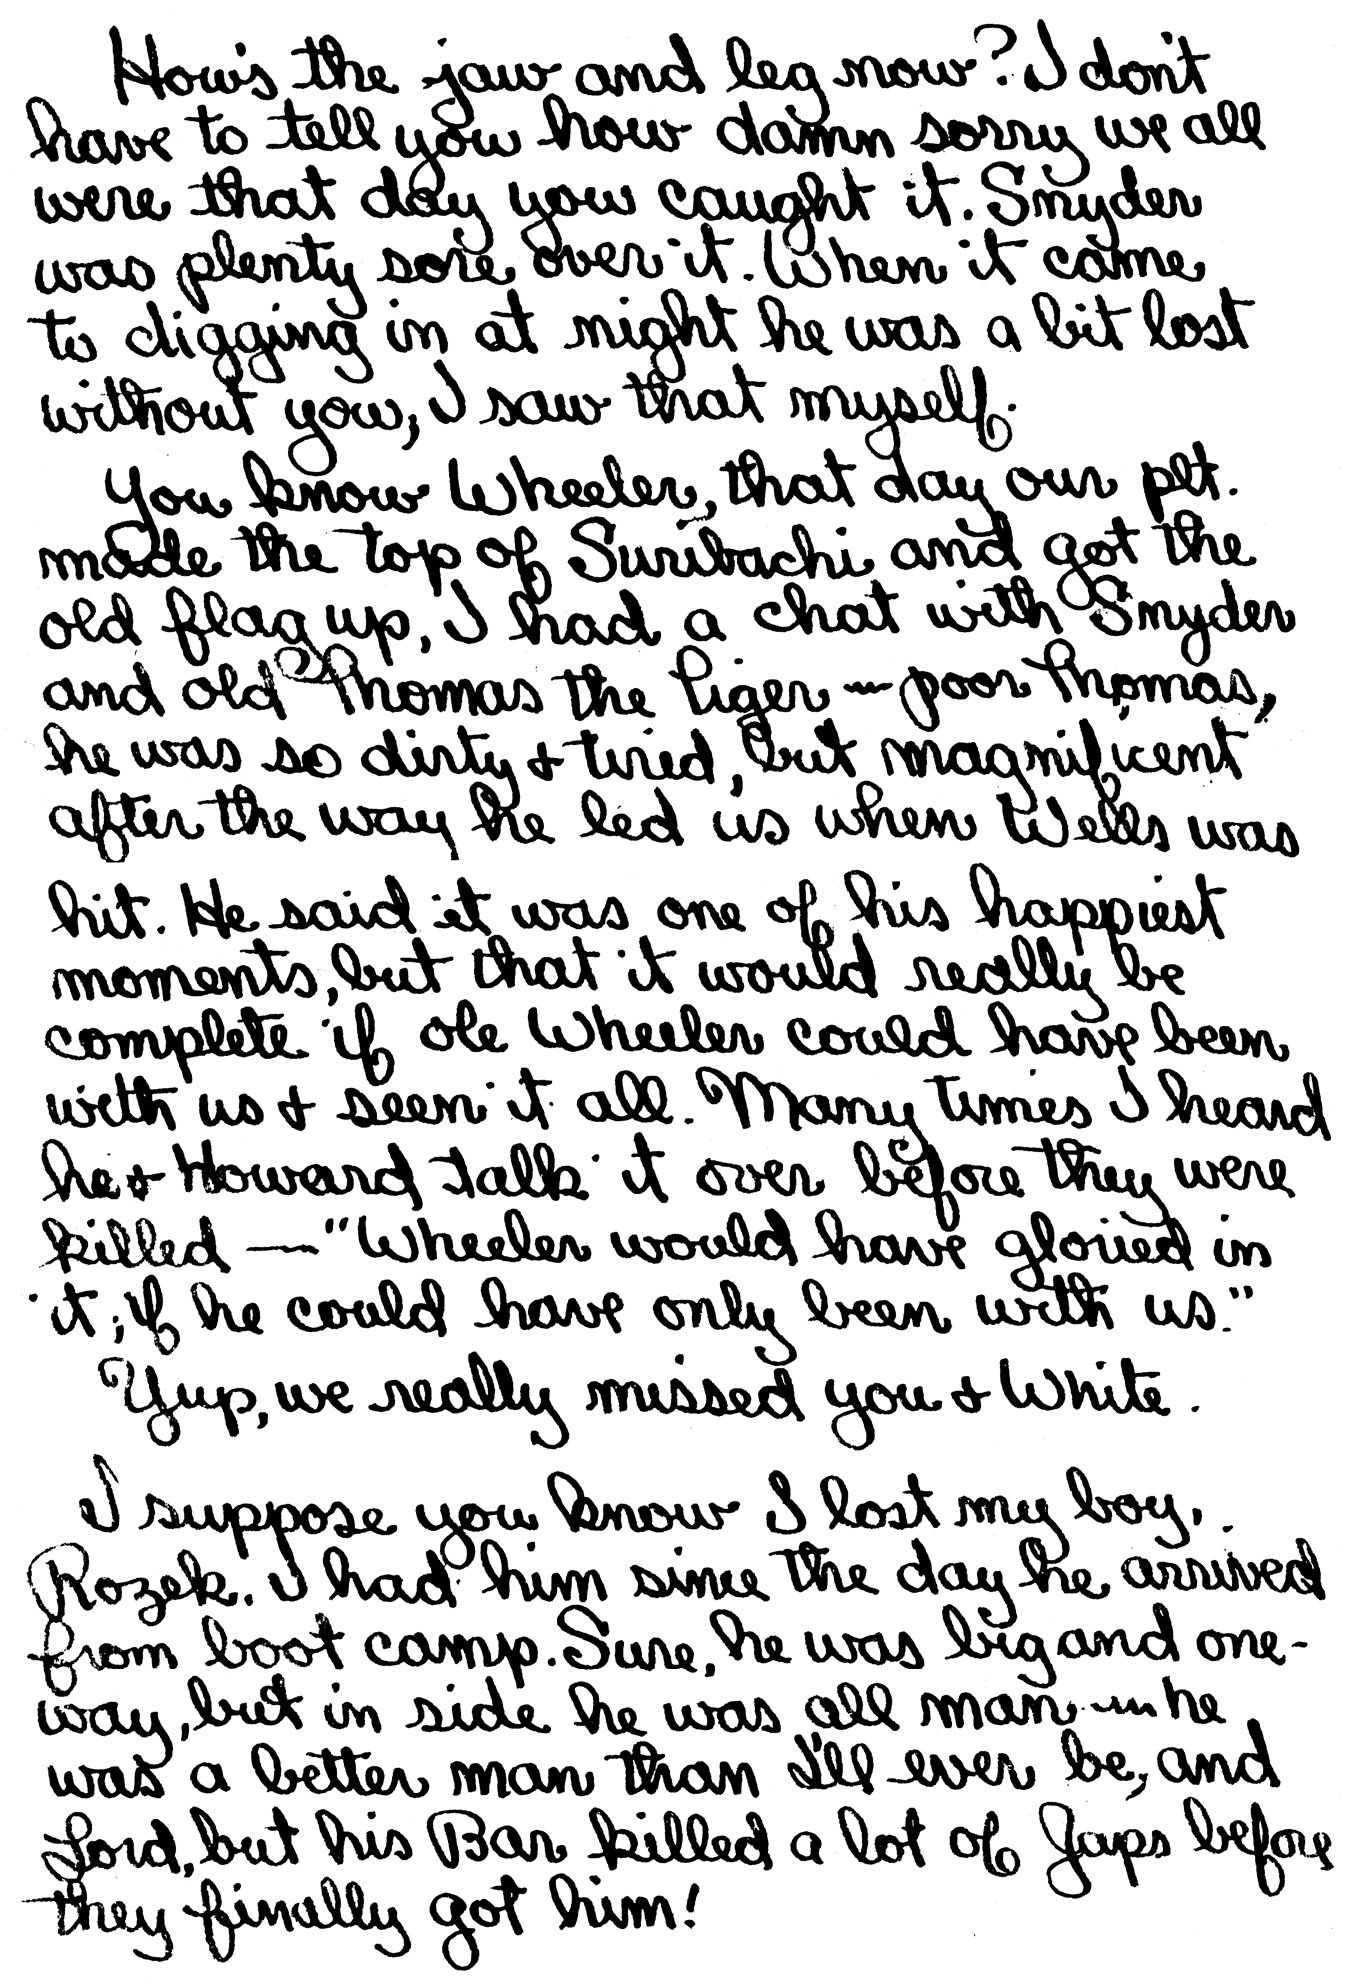 How's the jaw and leg now? I don't
have to tell you how damn sorry we all
were that day you caught it. Snyder
was plenty sore over it. When it came
to digging in at night he was a bit lost
without you, I saw that myself.
You know Wheeler, that day our plt.
made the top of Suribachi and got the
old flag up, I had a chat with Snyder
and old Thomas the Tiger — poor Thomas,
he was so dirty & tired, but magnificent
after the way he led us when Wells was
hit. He said it was one of his happiest
moments, but that it would really be
complete if ole Wheeler could have been
with us & seen it all. Many times I heard
he & Howard talk it over before they were
killed — "Wheeler would have gloried in
it, if he could have only been with us."
Yup, we really missed you & White.
I suppose you know I lost my boy,
Rozek. I had him since the day he arrived
from boot camp. Sure, he was big and one-
way, but in side he was all man — he
was a better man than I'll ever be, and
Lord, but his Bar killed a lot of Japs before
they finally got him!